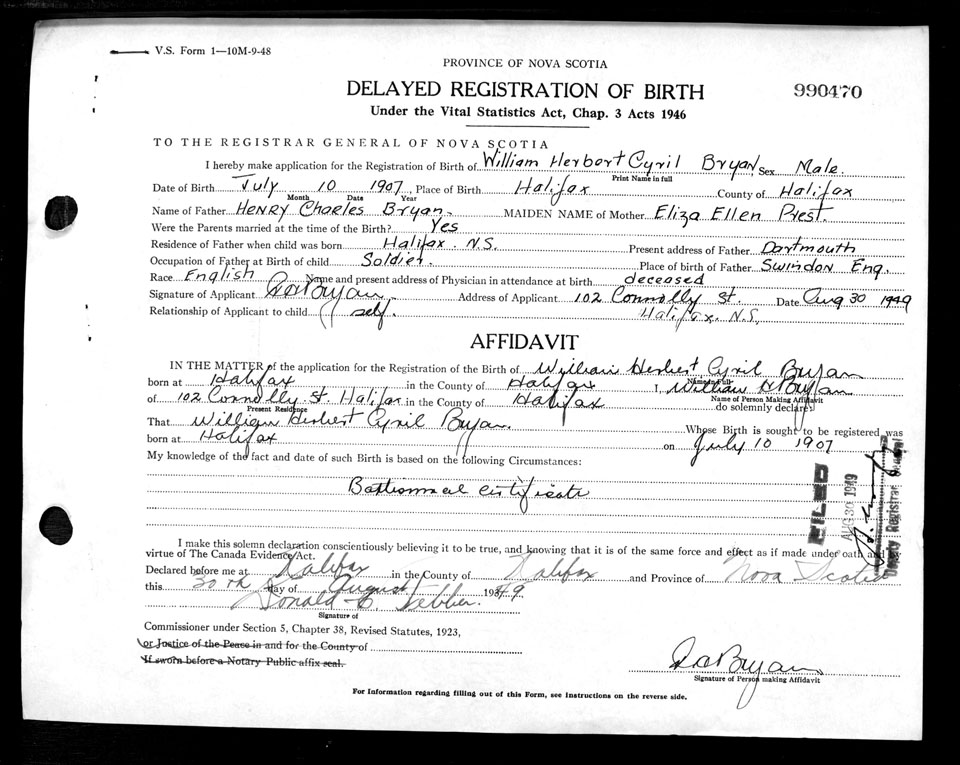 V.S. Form 1—10M-9-48
PROVINCE OF NOVA SCOTIA
DELAYED REGISTRATION OF BIRTH
990470
Under the Vital Statistics Act, Chap. 3 Acts 1946
TO THE REGISTRAR GENERAL OF NOVA SCOTIA
I hereby make application for the Registration of Birth of William Herbert Cyril Bryan, Sex Male.
Print Name in full
Date of Birth July 10 1907, Place of Birth Halifax County of Halifax
Month Date Year
Name of Father Henry Charles Bryan. MAIDEN NAME of Mother Eliza Ellen Prest.
Were the Parents married at the time of the Birth? Yes
Residence of Father when child was born Halifax. N.S. Present address of Father Dartmouth
Occupation of Father at Birth of child Soldier. Place of birth of Father Swindon Eng.
Race English Name and present address of Physician in attendance at birth deceased
Signature of Applicant Bryan. Address of Applicant 102 Connolly St. Date Aug 30 1949
Relationship of Applicant to child self. Halifax. N.S.
AFFIDAVIT
IN THE MATTER of the application for the Registration of the Birth of William Herbert Cyril Bryan
born at Halifax in the County of Halifax I, William H Bryan
Name in Full
of 102 Connolly St. Halifax in the County of Halifax
Name of Person Making Affidavit
do solemnly declare:
Present Residence
That William Herbert Cyril Bryan. Whose Birth is sought to be registered was
born at Halifax on July 10 1907
My knowledge of the fact and date of such Birth is based on the following Circumstances:
Baptismal certificate
FILED
AUG 30 1949
Deputy Registrar General
I make this solemn declaration conscientiously believing it to be true, and knowing that it is of the same force and effect as if made under oath and by
virtue of The Canada Evidence Act.
Declared before me at Halifax in the County of Halifax and Province of Nova Scotia
this 30th day of August 1949
Donald Webber.
Signature of
Commissioner under Section 5, Chapter 38, Revised Statutes, 1923,
or Justice of the Peace in and for the County of
If sworn before a Notary Public affix seal.
Bryan.
Signature of Person making Affidavit
For Information regarding filling out of this Form, see Instructions on the reverse side.